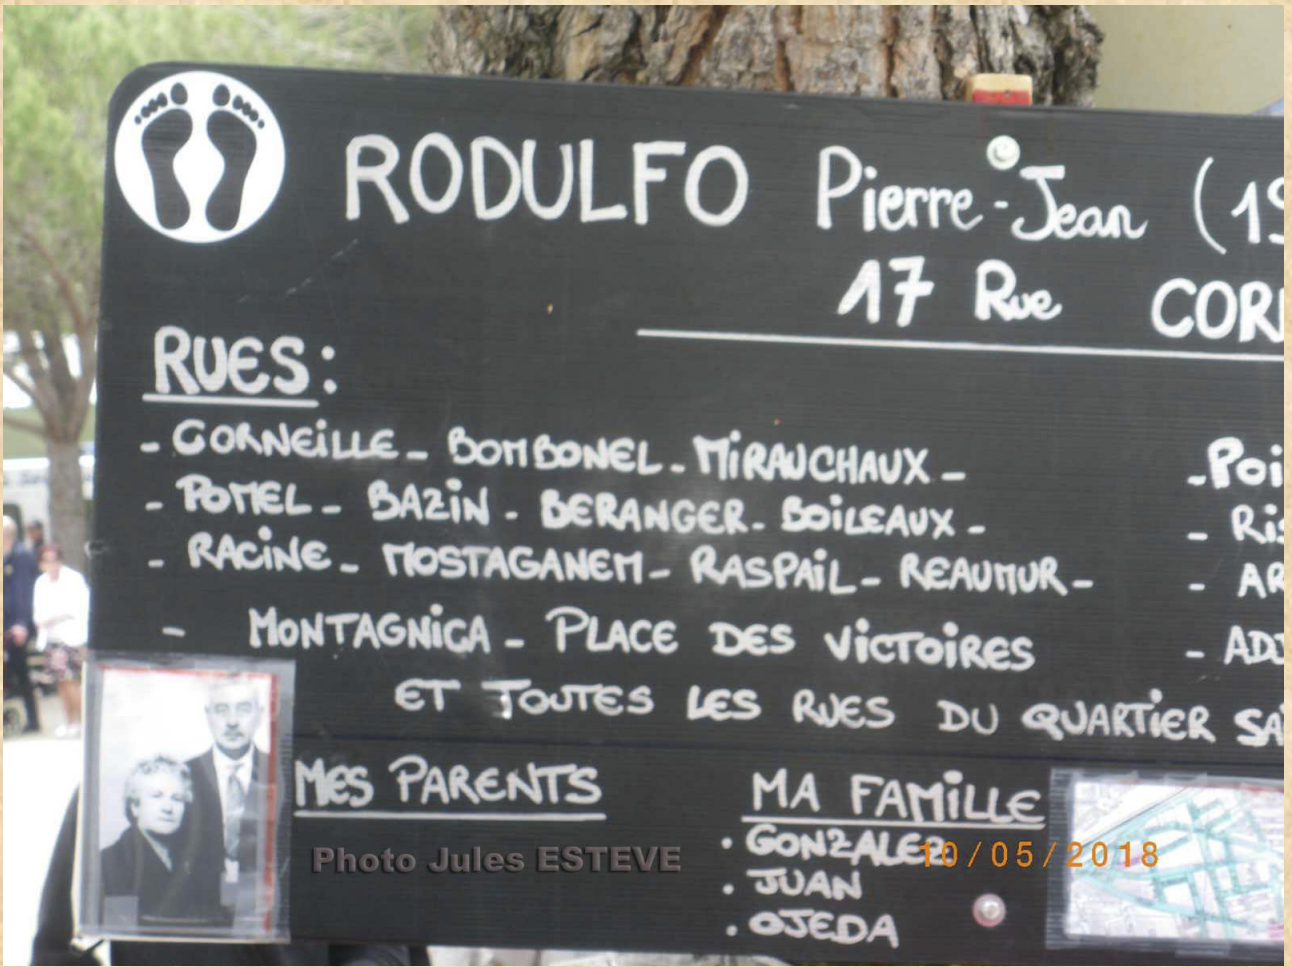 RODULFO Pierre-Jean (19
17 Rue COR
RUES:
- CORNEILLE - BOMBONEL - MiRAUCHAUX - - Poi
- POMEL - BAZiN - BERANGER - BOiLEAUX - - Ris
- RACiNE - MOSTAGANEM - RASPAiL - REAUMUR - - AR
- MONTAGNiCA - PLACE DES ViCToiRES - ADJ
ET TOUTES LES RUES DU QUARTiER SA
MES PARENTS
MA FAMiLLE
. GONZALEZ
. JUAN
. OJEDA
Photo Jules ESTEVE
10/05/2018